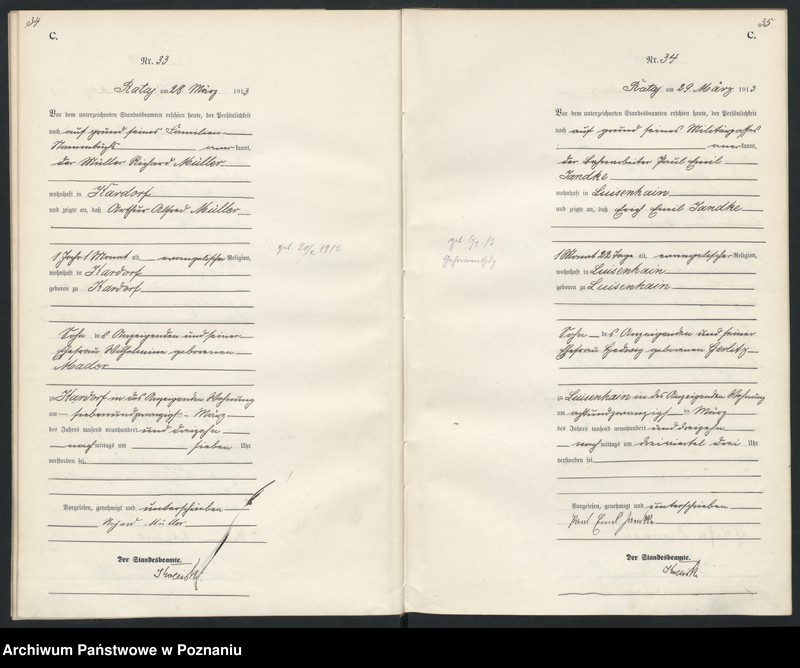 34
C.
Nr. 33
Rataj am 28. März 1913
Vor dem unterzeichneten Standesbeamten erschien heute, der Persönlichkeit
nach auf Grund seines Familien
Stammbuchs anerkannt,
der Müller Richard Müller
wohnhaft in Kardorf
und zeigte an, daß Arthur Alfred Müller
1 Jahr 1 Monat alt, evangelischer Religion,
wohnhaft in Kardorf
geboren zu Kardorf
Sohn des Anzeigenden und seiner
Ehefrau Wilhelmine geborenen
Mader
zu Kardorf in des Anzeigenden Wohnung
am siebenundzwanzigsten März
des Jahres tausend neunhundert und dreizehn
nachmittags um sieben Uhr
verstorben sei.
Vorgelesen, genehmigt und unterschrieben
Richard Müller
Der Standesbeamte.
geb. 1912
35
C.
Nr. 34
Rataj am 29. März 1913
Vor dem unterzeichneten Standesbeamten erschien heute, der Persönlichkeit
nach auf Grund seines Militärpasses
anerkannt,
der Bahnarbeiter Paul Emil
Jandke
wohnhaft in Luisenhain
und zeigte an, daß Erich Emil Jandke
1 Monat 22 Tage alt, evangelischer Religion,
wohnhaft in Luisenhain
geboren zu Luisenhain
Sohn des Anzeigenden und seiner
Ehefrau Hedwig geborenen Gerlitz
zu Luisenhain in des Anzeigenden Wohnung
am achtundzwanzigsten März
des Jahres tausend neunhundert und dreizehn
nachmittags um dreiviertel drei Uhr
verstorben sei.
Vorgelesen, genehmigt und unterschrieben
Paul Emil Jandke
Der Standesbeamte.
geb. 13
Archiwum Państwowe w Poznaniu